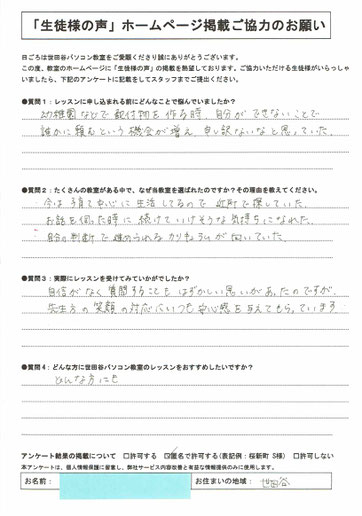 「生徒様の声」ホームページ掲載ご協力のお願い
日ごろは世田谷パソコン教室をご愛顧くださり誠にありがとうございます。
この度、教室のホームページに「生徒様の声」の掲載を熱望しております。ご協力いただける生徒様がいらっしゃ
いましたら、下記のアンケートに記載をしてスタッフまでご提出ください。
●質問1：レッスンに申し込まれる前にどんなことで悩んでいましたか?
幼稚園などで配付物を作る時、自分ができないことで
誰かに頼むという機会が増え、申し訳ないなと思っていた。
●質問2：たくさんの教室がある中で、なぜ当教室を選ばれたのですか?その理由を教えてください。
・今は子育て中心に生活してるので近所で探していた。
・お話を伺った時に続けていけそうな気持ちになれた。
・自分の判断で進められるカリキュラムが向いていた。
●質問3：実際にレッスンを受けてみていかがでしたか?
自信がなく質問することもはずかしい思いがあったのですが、
先生方の笑顔の対応にいつも安心感を与えてもらっています。
●質問4：どんな方に世田谷パソコン教室のレッスンをおすすめしたいですか?
どんな方にも
アンケート結果の掲載について　□許可する　☑匿名で許可する(表記例：桜新町 S様)　□許可しない
本アンケートは、個人情報保護に留意し、弊社サービス内容改善と有益な情報提供のみに使用します。
お名前：　お住まいの地域：世田谷